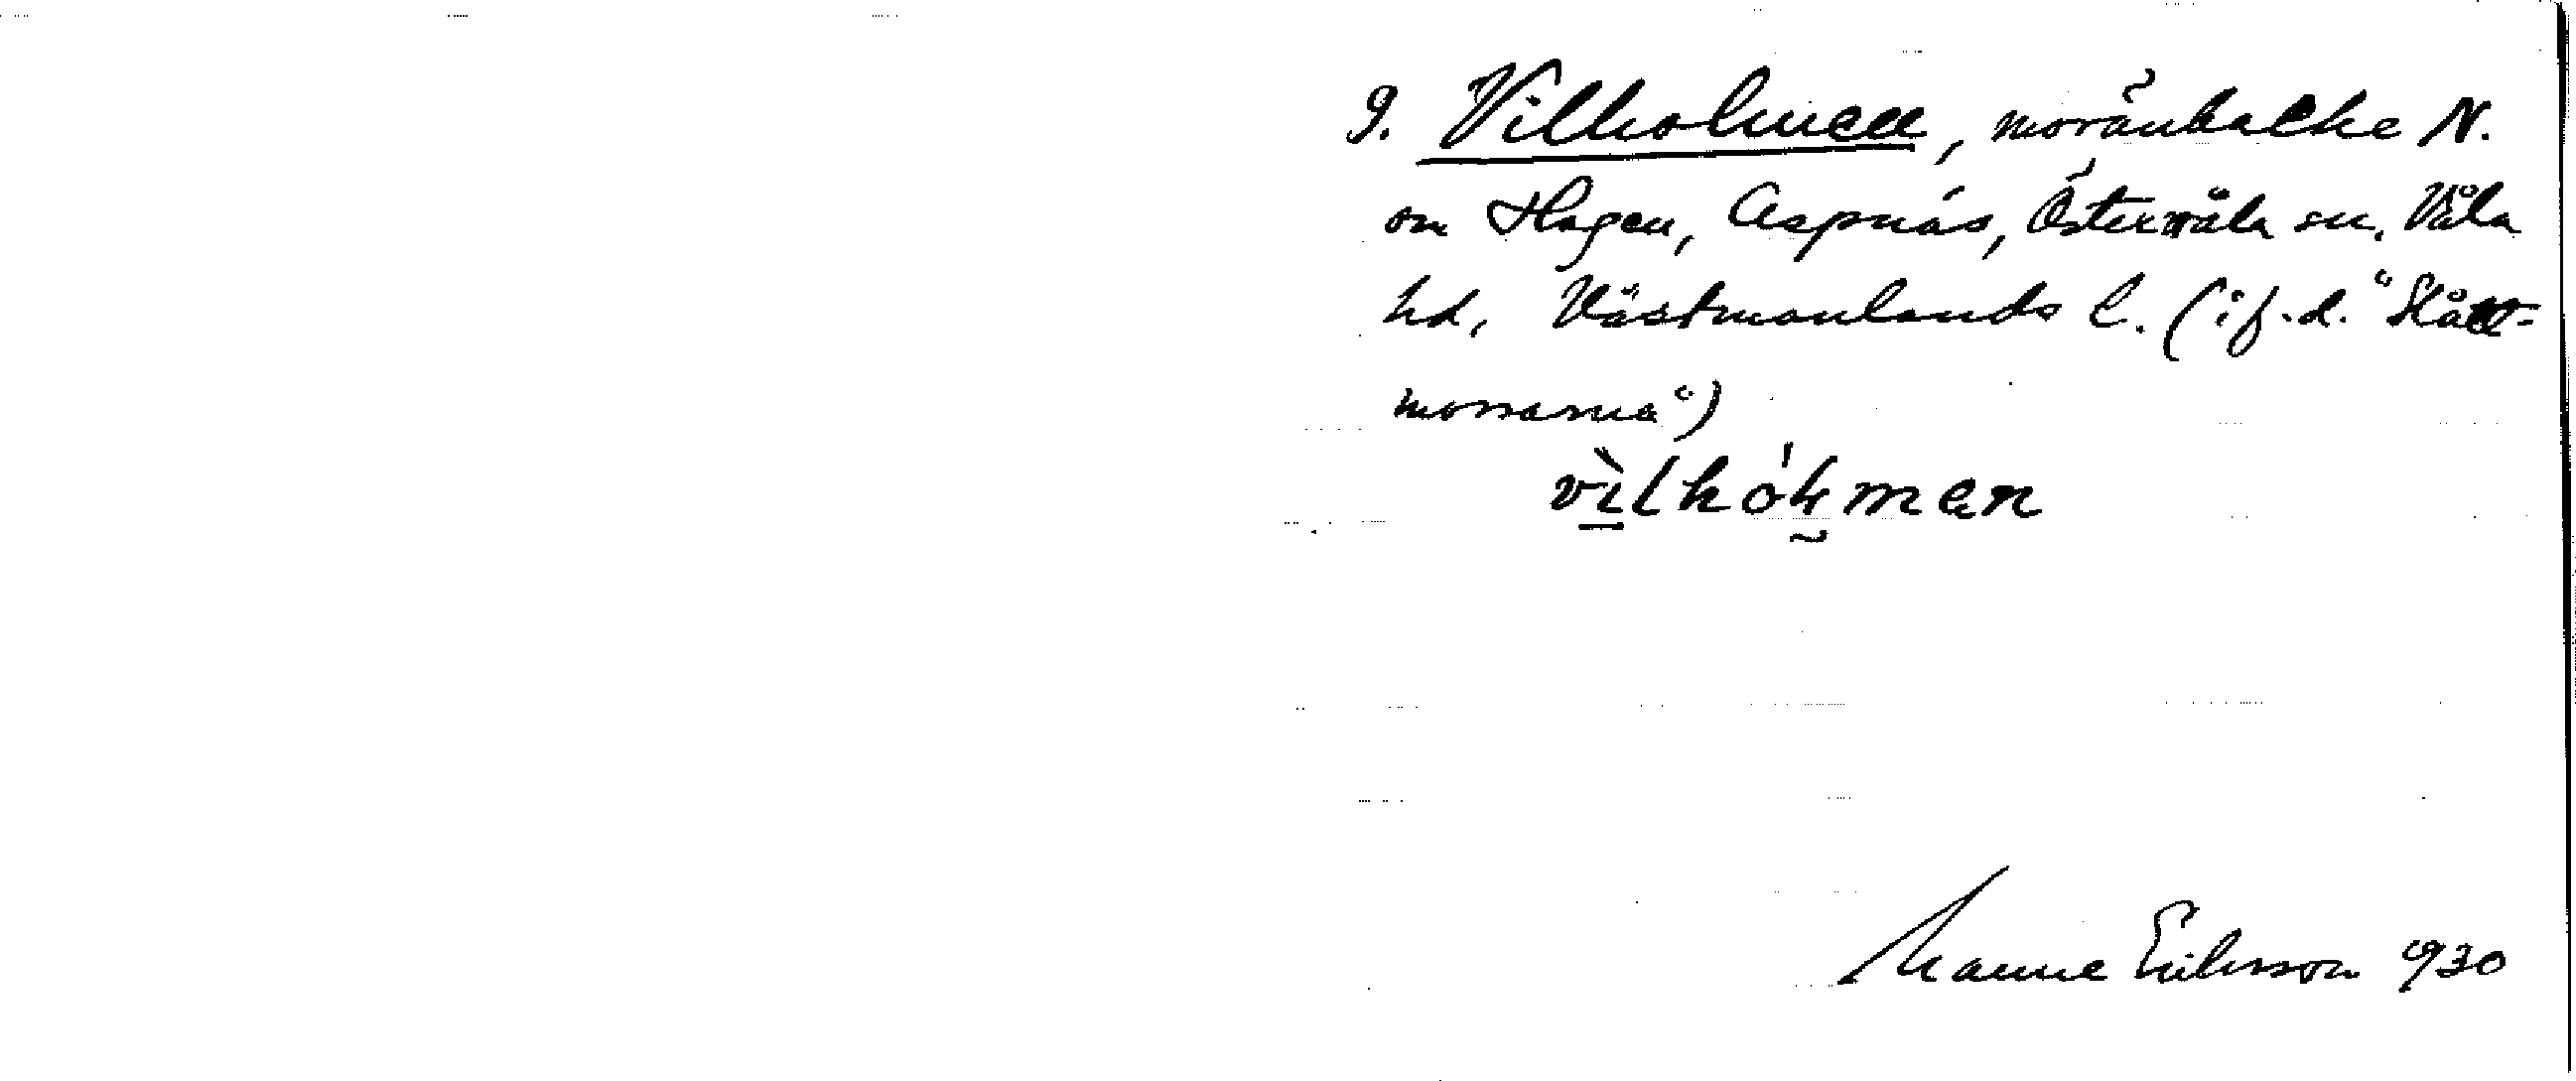 9. Vilholmen, moränbacke N.
om Hagen, Aspnäs, Östervåla sn, Våla
hd, Västmanlands l. (i f.d. "Slått-
mossarna")
vìlhóɫmen
Manne Eriksson 1930